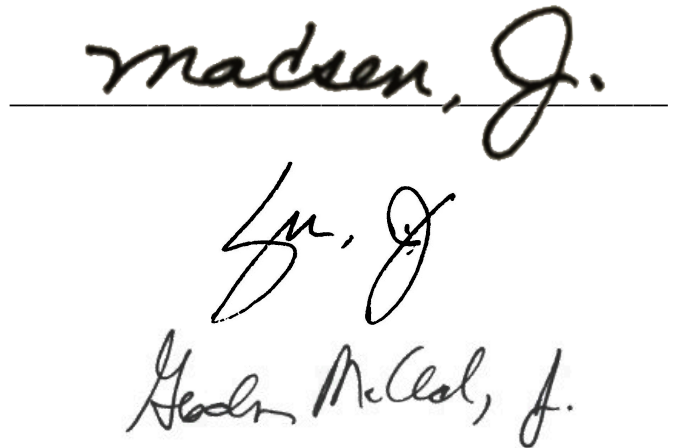 Madsen, J.
Yu, J.
Gordon McCloud, J.